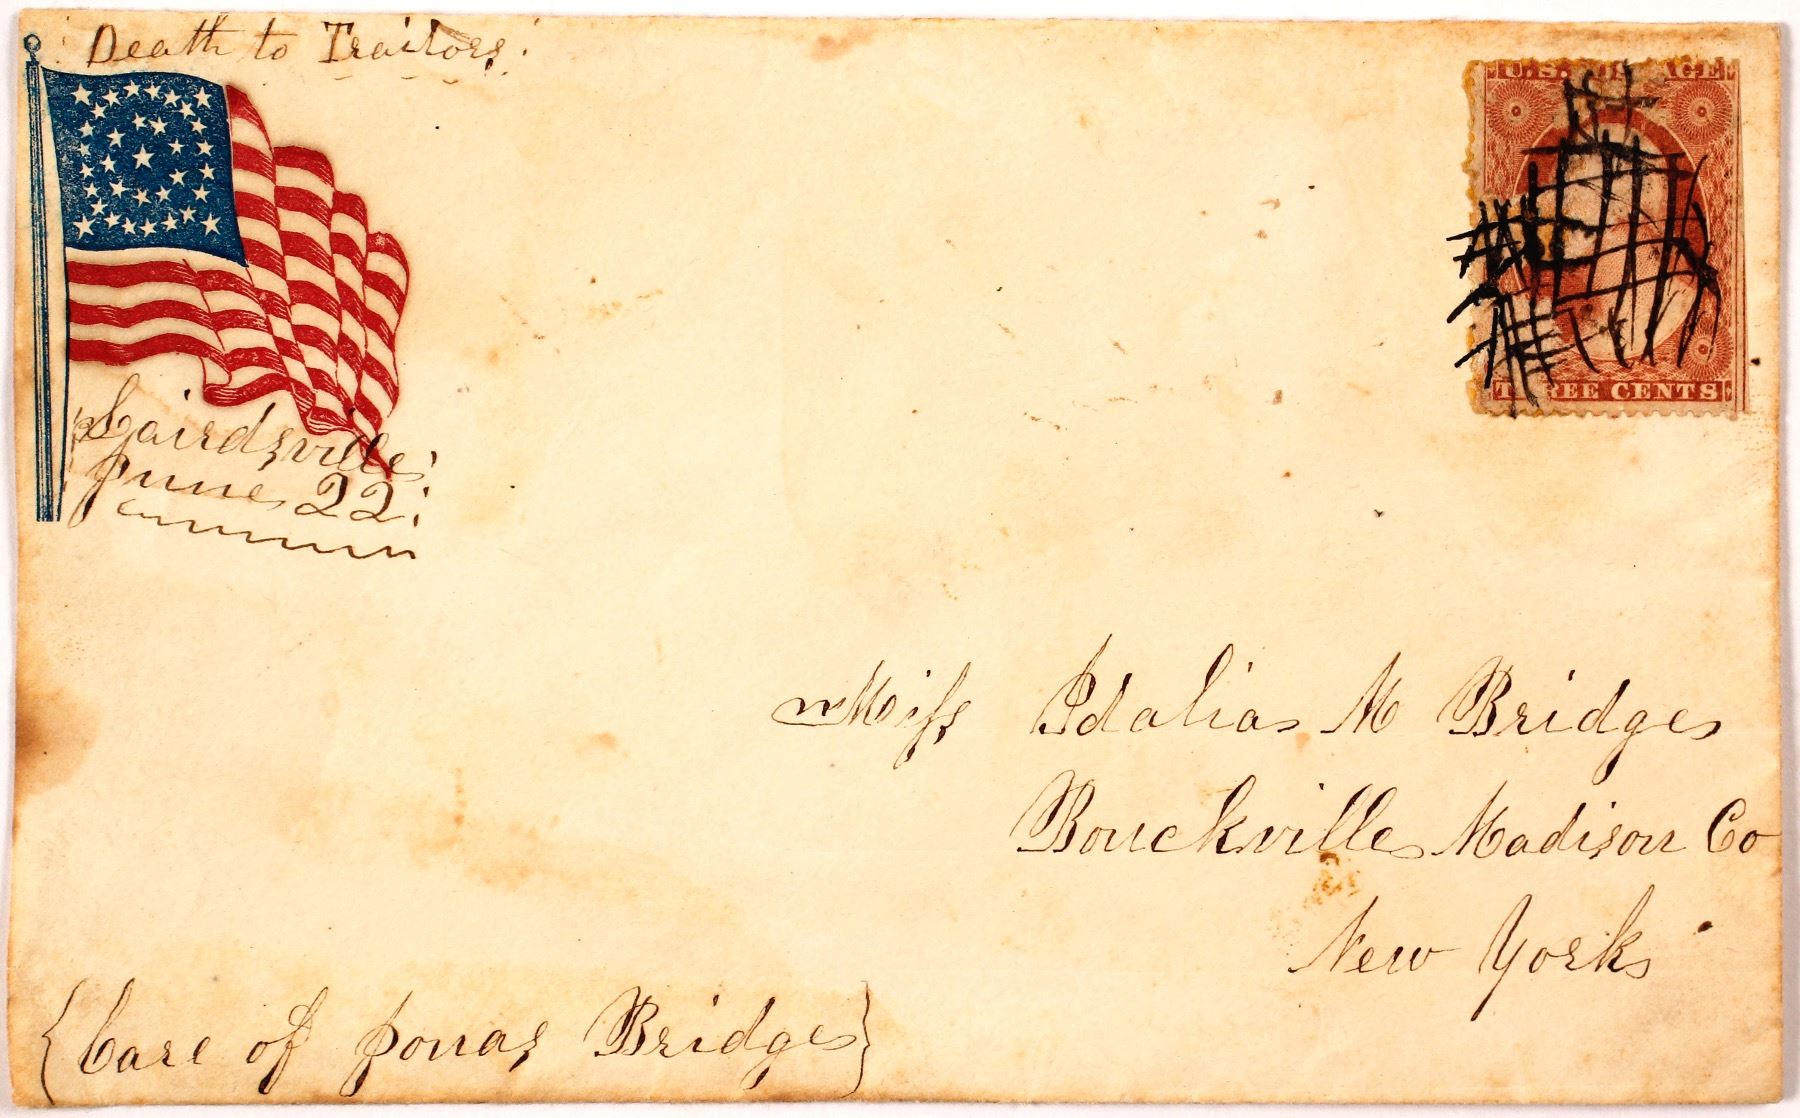 Death to Traitors.
U.S. POSTAGE
THREE CENTS
Lairdsville
June 22
Miss Idalia M Bridges
Bouckville Madison Co
New York
{Care of Jonas Bridges}